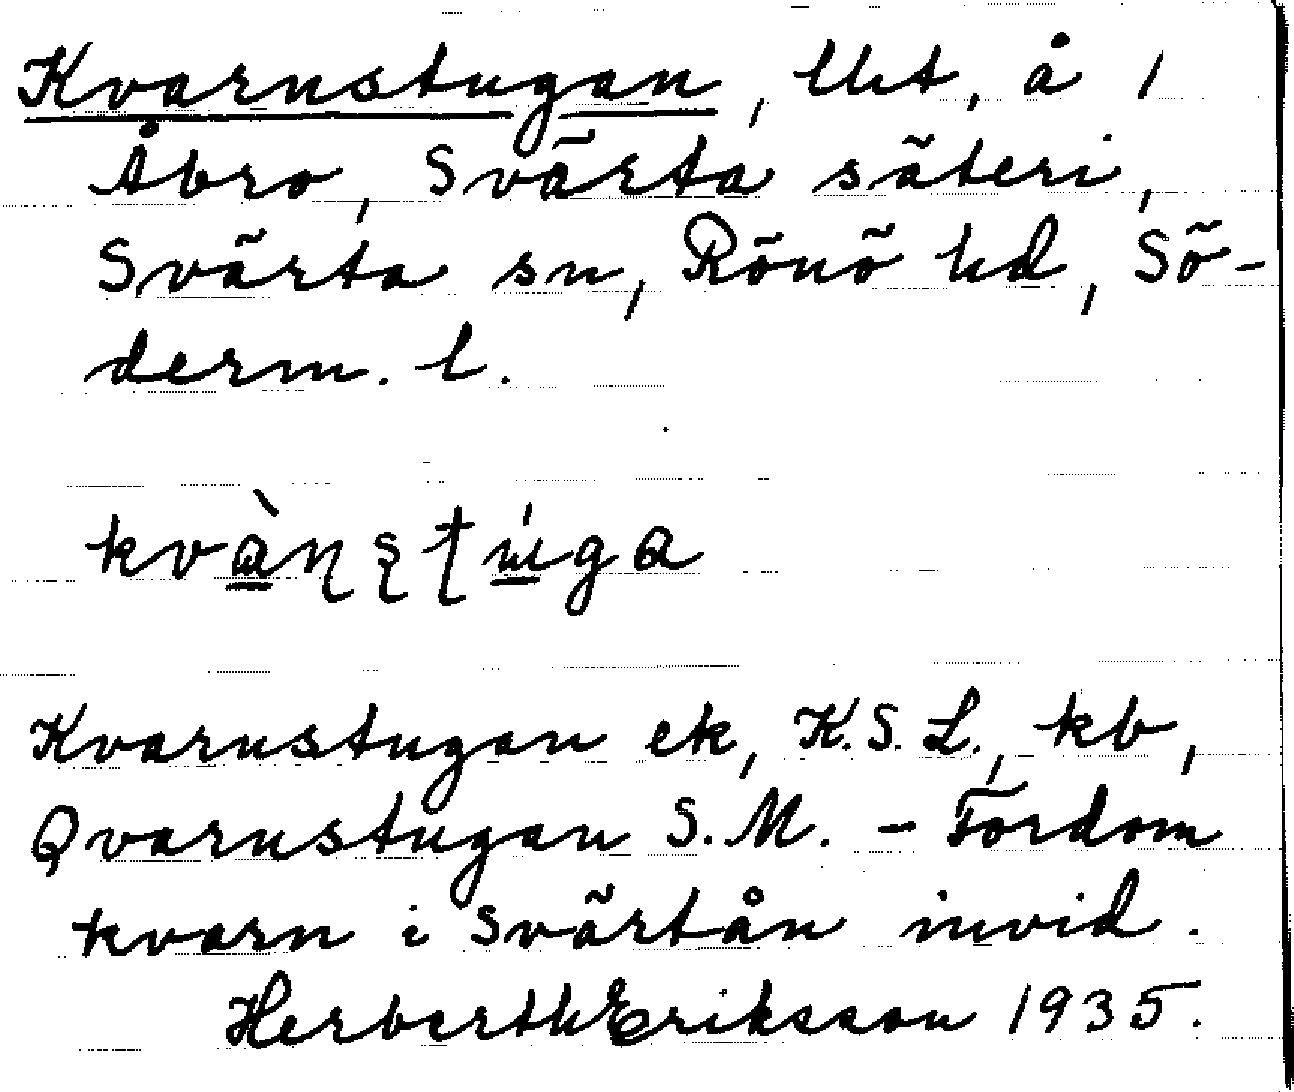 Kvarnstugan, lht, å 1
Åbro, Svärta säteri,
Svärta sn, Rönö hd, Sö-
derm. l.
kvàɳʂʈúga
Kvarnstugan ek, K.S.L., kb,
Qvarnstugan S.M. - Fordom
kvarn i Svärtån invid.
Herberth Eriksson 1935.